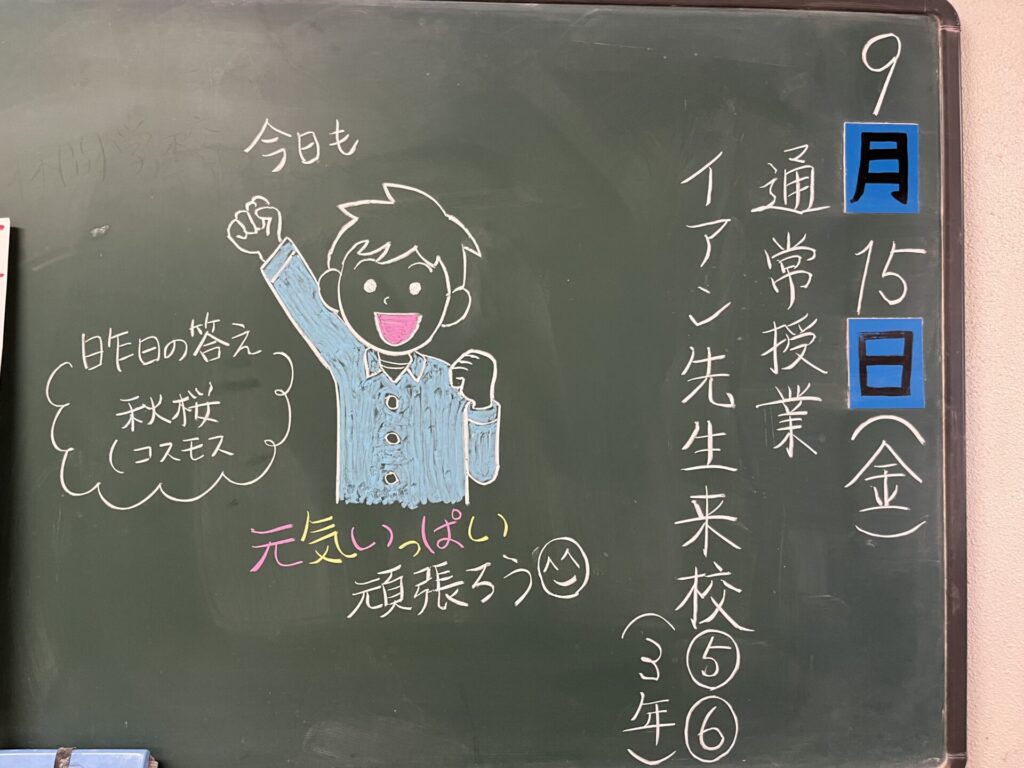 9月15日(金)
通常授業
イアン先生来校⑤⑥
(3年)
今日も
元気いっぱい
頑張ろう
昨日の答え
秋桜
(コスモス